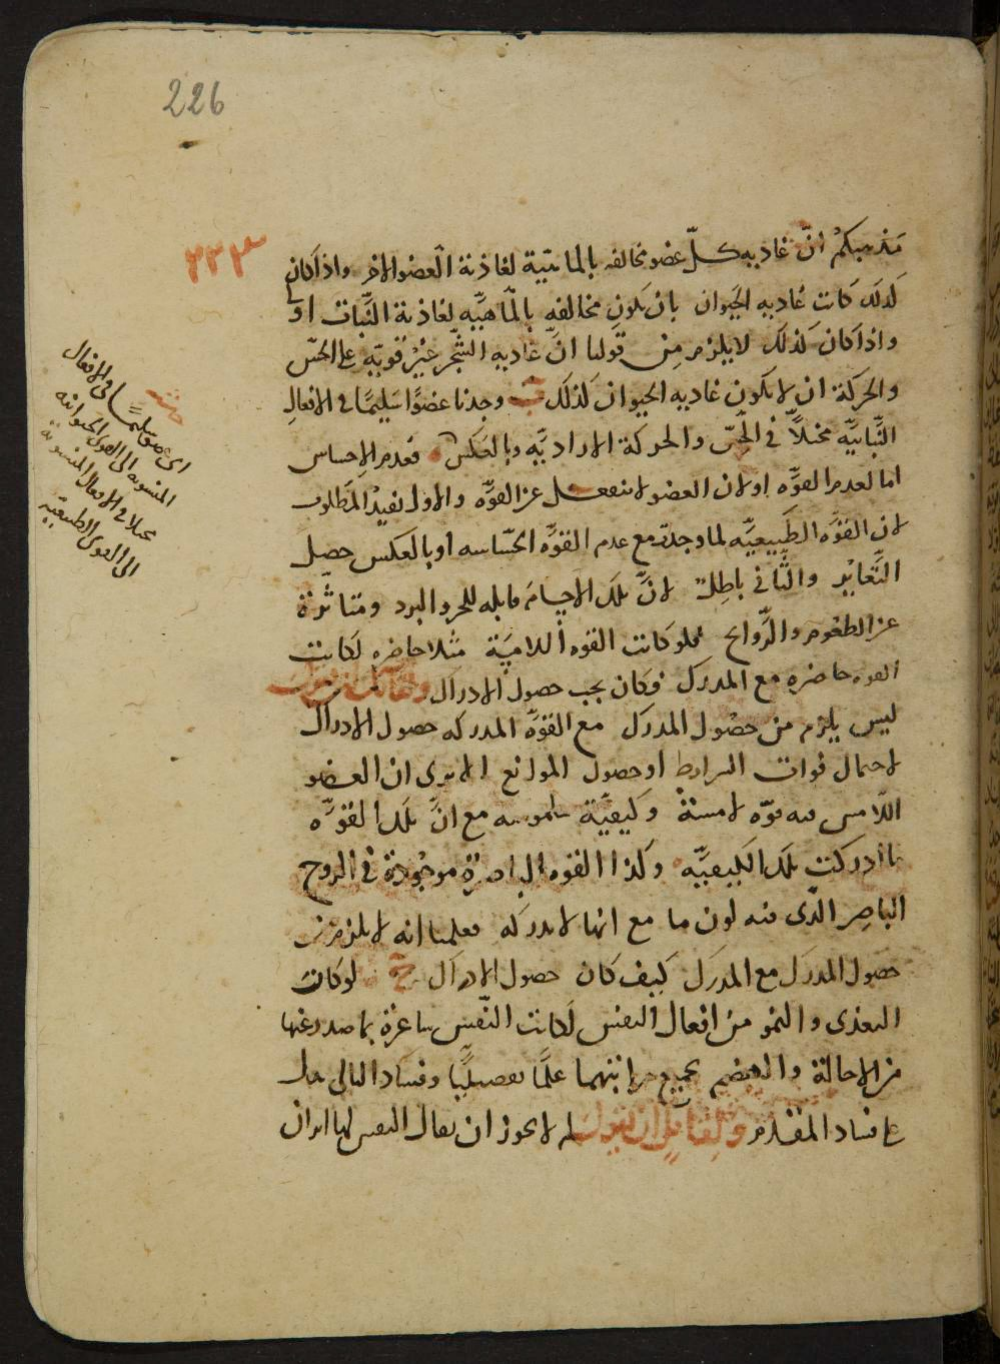 226
٢٢٣
مذهبكم ان غاذيه كلّ عضو مخالفه بالماهيّة لغاذية العضو الاخر واذا كان
كذلك كانت غاذيه الحيوان بان يكون مخالفه بالماهيّه لغاذية النّبات اولى
واذا كان كذلك لا يلزم من قولنا انّ غاذيه الشّجر غير قويّه على الحسّ
والحركة ان لا يكون غاذيه الحيوان كذلك وجدنا عضوًا سليمًا فى الافعال
النّباتيّه مختلاًّ فى الحسّ والحركة الاراديّه وبالعكس فعدم الاحساس
اما لعدم القوّه او لان العضو لا ينفعل عن القوّه والاول يفيد المطلوب
لان القوّه الطّبيعيّه لما وجدت مع عدم القوّه الحسّاسه او بالعكس حصل
التّغاير والثّانى باطل لانّ تلك الاجسام قابله للحر والبرد ومتاثرة
عن الطعوم والرّوائح فلو كانت القوه اللامسة مثلا حاضره لكانت
القوه حاضره مع المدرك فكان يجب حصول الادراك ولقائل ان يقول
ليس يلزم من حصول المدرك مع القوّه المدركه حصول الادراك
لاحتمال فوات الشرائط او حصول الموانع الا يرى ان العضو
اللامس فيه قوّه لامسة وكيفيّة ملموسه مع انّ تلك القوّه
ما ادركت تلك الكيفيّه وكذا القوه الباصرة موجودة فى الروح
الباصر الّذى فيه لون ما مع انها لا تدركه فعلمنا انه لا يلزم من
حصول المدرك مع المدرك كيف كان حصول الادراك لو كان
التغذى والنمو من افعال النفس لكانت النّفس شاعرة بما صدر عنها
من الاحالة والهضم بجميع مراتبهما علمًا تفصيليًّا وفساد التالى يدل
على فساد المقدّم ولقائل ان يقول لم لا يجوز ان يقال النفس لها
اى عضو سليمًا فى الافعال
المنسوبه الى القوى الحيوانيه
مختلا فى الافعال المنسوبة
الى القوى الطبيعيّه